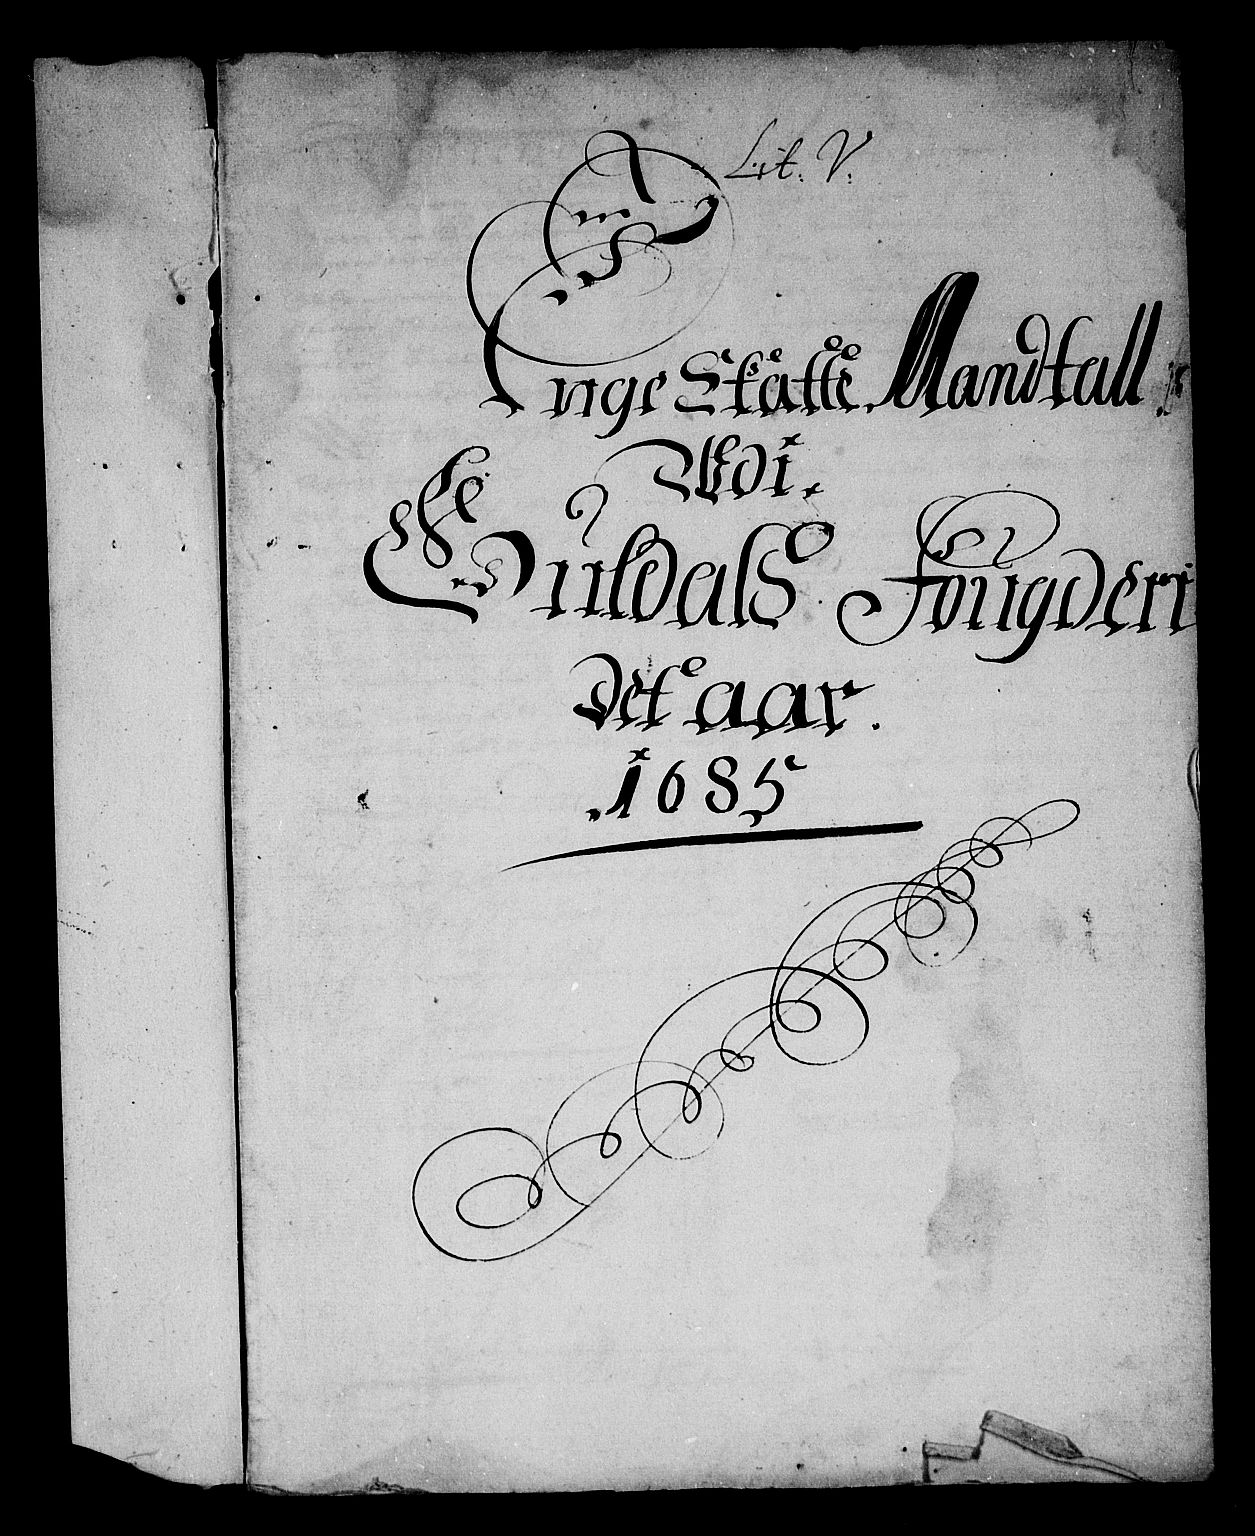 Lit. V.
Tinge Skatte Mandtall
Udi.
Guldals Fougderi
Det aar.
.1685